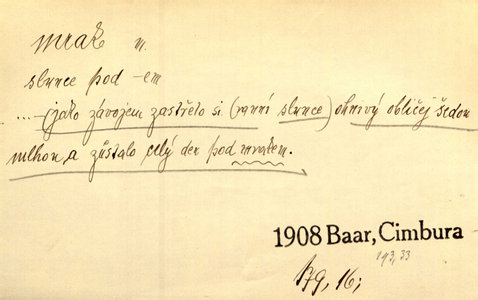 mrak m.
slunce pod -em
.... - jako závojem zastřelo si (ranní slunce) ohnivý obličej šedou
mlhou, a zůstalo celý den pod mrakem.
1908 Baar, Cimbura
193, 33
179, 16;